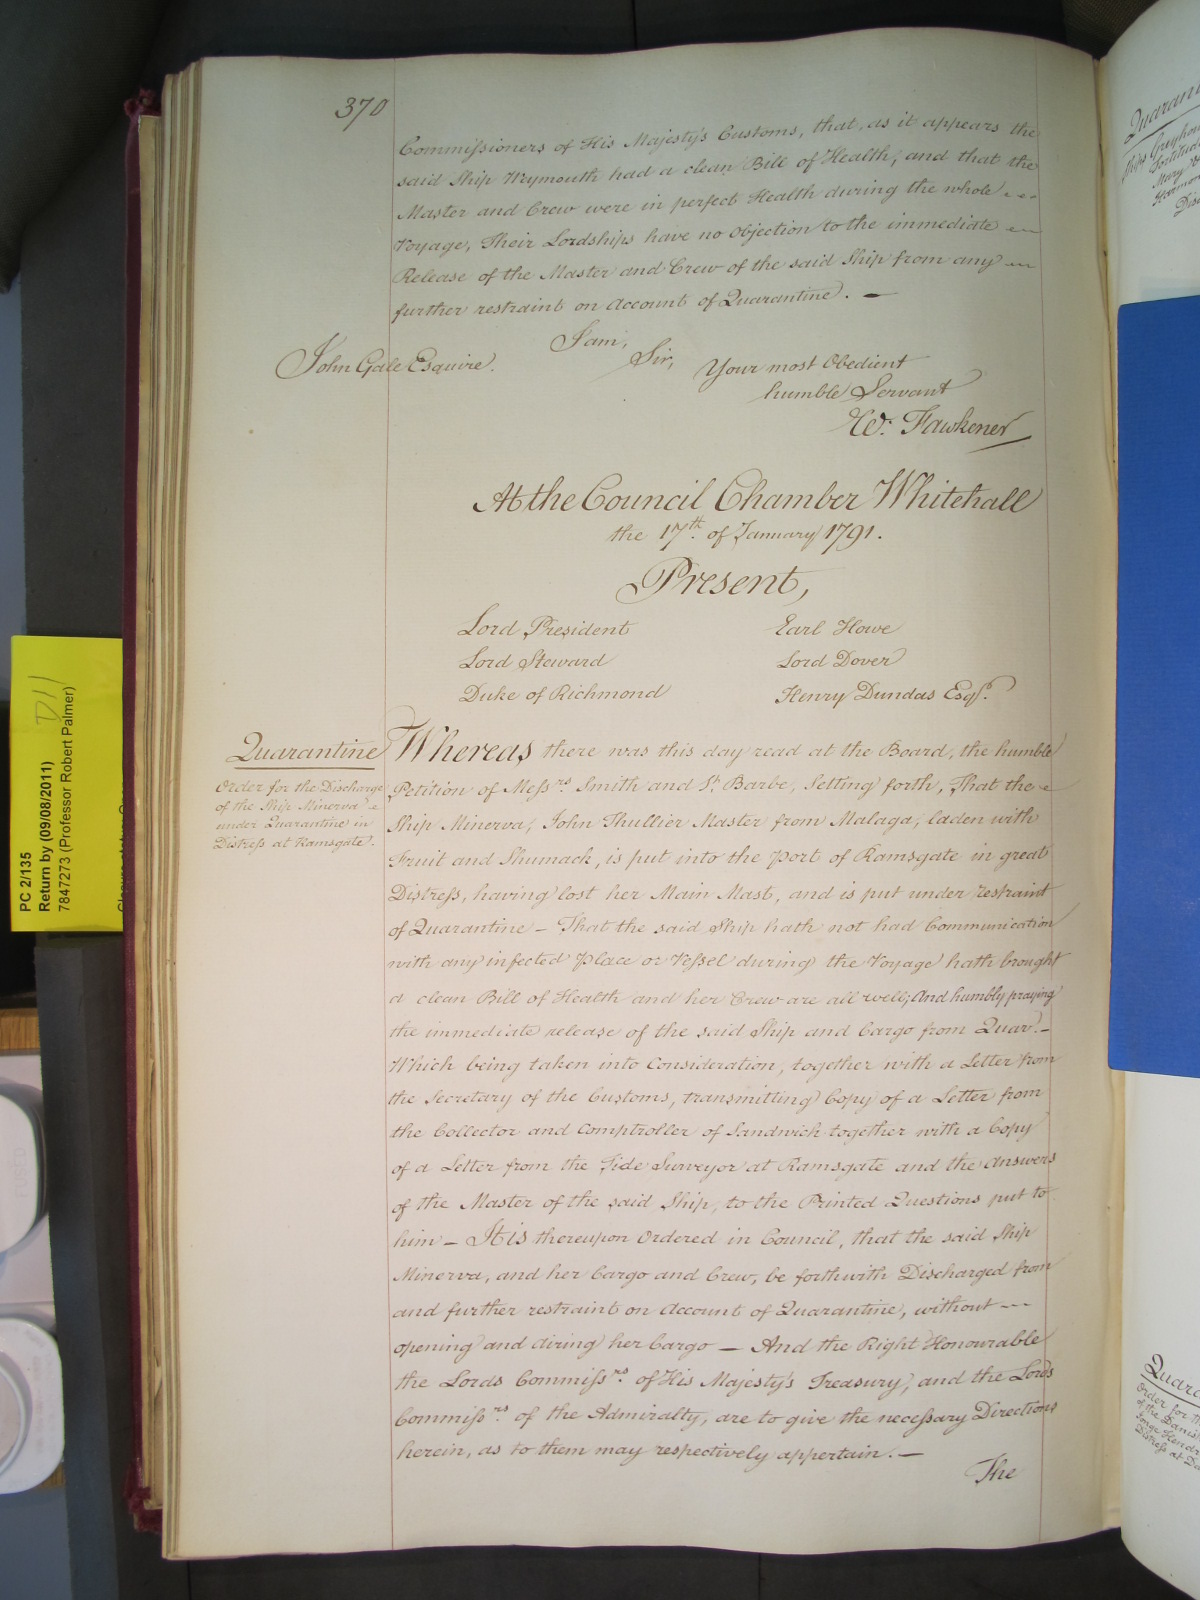 370
Commissioners of His Majesty's Customs, that, as it appears the
said Ship Weymouth had a clean Bill of Health, and that the
Master and Crew were in perfect Health during the whole
Voyage, Their Lordships have no Objection to the immediate
Release of the Master and Crew of the said Ship from any
further restraint on Account of Quarantine. —
I am,
Sir,
John Gale Esquire.
Your most Obedient
humble Servant
W. Fawkener
At the Council Chamber Whitehall
the 17th. of January 1791.
Present,
Lord President Earl Howe
Lord Steward Lord Dover
Duke of Richmond Henry Dundas Esqr.
Quarantine
Order for the Discharge
of the Ship Minerva
under Quarantine in
Distress at Ramsgate.
Whereas there was this day read at the Board, the humble
Petition of Messrs. Smith and St. Barbe, Setting forth, That the
Ship Minerva, John Thullier Master from Malaga, laden with
Fruit and Shumack, is put into the port of Ramsgate in great
Distress, having lost her Main Mast, and is put under restraint
of Quarantine – That the said Ship hath not had Communication
with any infected Place or Vessel during the Voyage hath brought
a clean Bill of Health and her Crew are all well; And humbly praying
the immediate release of the said Ship and Cargo from Quar:–
Which being taken into Consideration, together with a Letter from
the Secretary of the Customs, transmitting Copy of a Letter from
the Collector and Comptroller of Sandwich together with a Copy
of a Letter from the Tide Surveyor at Ramsgate and the Answers
of the Master of the said Ship, to the Printed Questions put to
him – It is thereupon Ordered in Council, that the said Ship
Minerva, and her Cargo and Crew, be forthwith Discharged from
and further restraint on Account of Quarantine, without
opening and airing her Cargo — And the Right Honourable
the Lords Commissrs. of His Majesty's Treasury, and the Lords
Commissrs. of the Admiralty, are to give the necessary Directions
herein, as to them may respectively appertain. —
The
PC 2/135
Return by (09/08/2011)
7847273 (Professor Robert Palmer)
D11
Quaran
Ships Greyho
Fortitude
Mary
Quara
Order for
of the Danish
Distress at